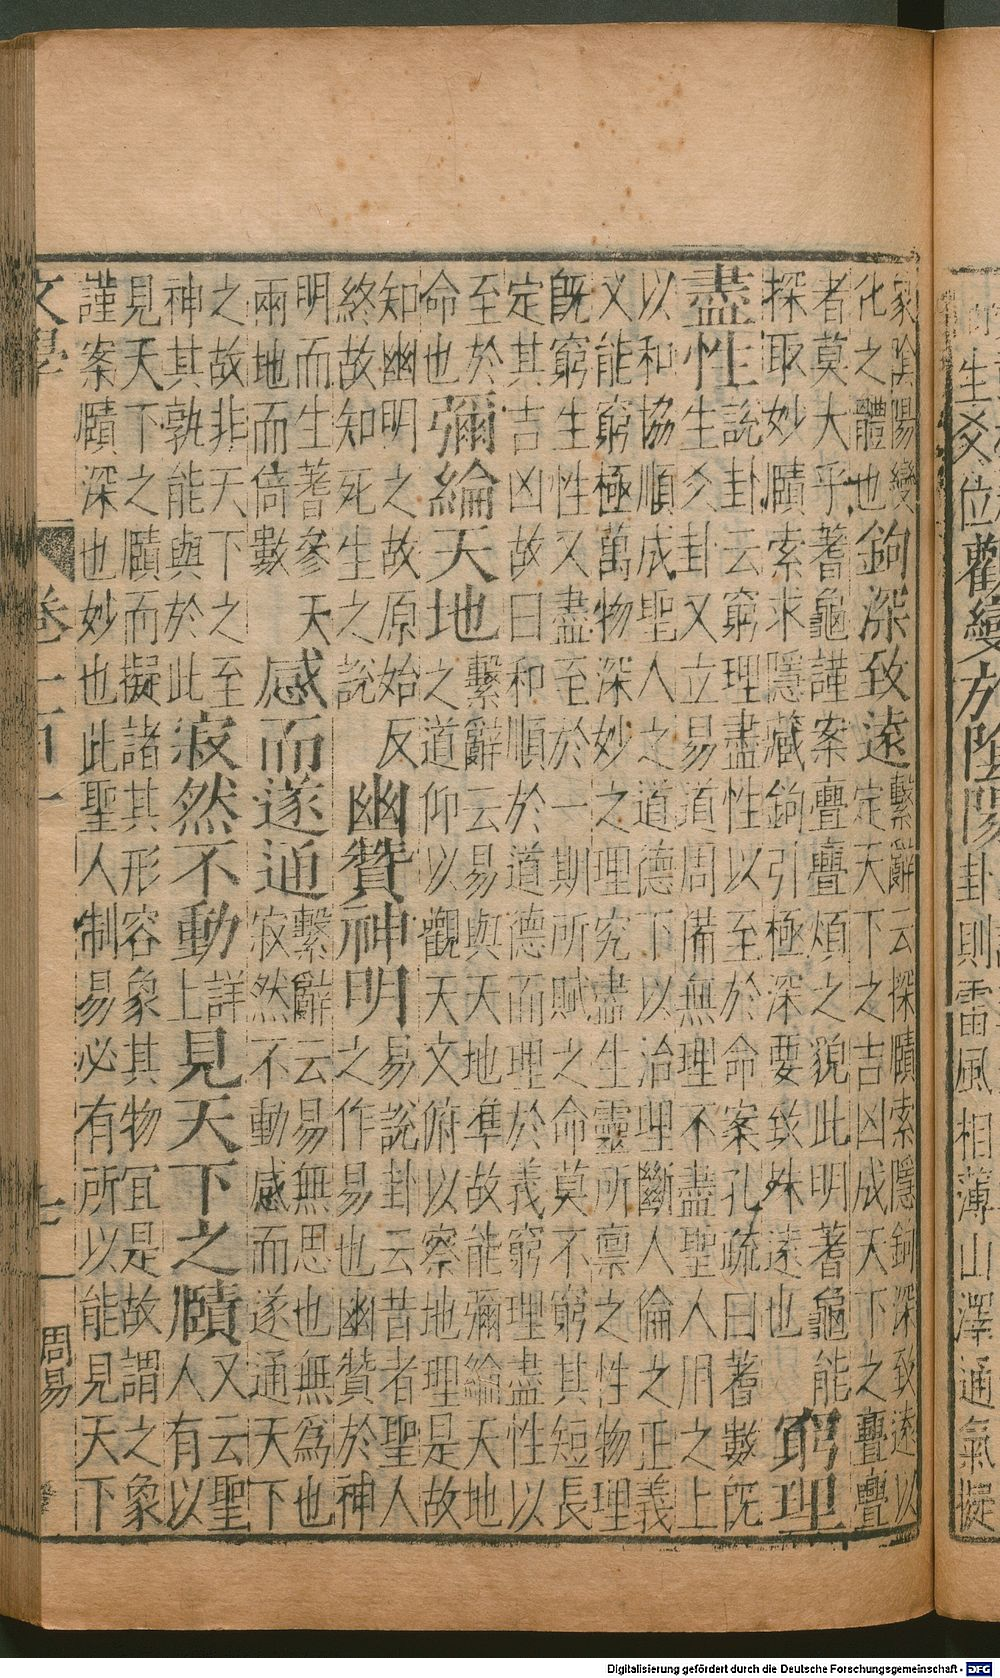 生爻位觀變於陰陽卦則雷風相薄山澤通氣擬
象陰陽變
化之體也
鉤深致遠
繫辭云探賾索隱鉤深致遠以
定天下之吉凶成天下之亹亹
者莫大乎蓍龜謹案亹亹煩之貌此明蓍龜能
探取妙賾索求隱藏鉤引極深要致殊遠也
窮理
盡性
說卦云窮理盡性以至於命案孔疏曰蓍數旣
生爻卦又立易道周備無理不盡聖人用之上
以和協順成聖人之道德下以治理斷人倫之正義
又能窮極萬物深妙之理究盡生靈所稟之性物理
旣窮生性又盡至於一期所賦之命莫不窮其短長
定其吉凶故曰和順於道德而理於義窮理盡性以
至於
命也
彌綸天地
繫辭云易與天地準故能彌綸天地
之道仰以觀天文俯以察地理是故
知幽明之故原始反
終故知死生之說
幽贊神明
易說卦云昔者聖人
之作易也幽贊於神
明而生蓍參天
兩地而倚數
感而遂通
繫辭云易無思也無爲也
寂然不動感而遂通天下
之故非天下之至
神其孰能與於此
寂然不動
詳
上
見天下之賾
又云聖
人有以
見天下之賾而擬諸其形容象其物宜是故謂之象
謹案賾深也妙也此聖人制易必有所以能見天下
文學
周易
Digitalisierung gefördert durch die Deutsche Forschungsgemeinschaft - DFG